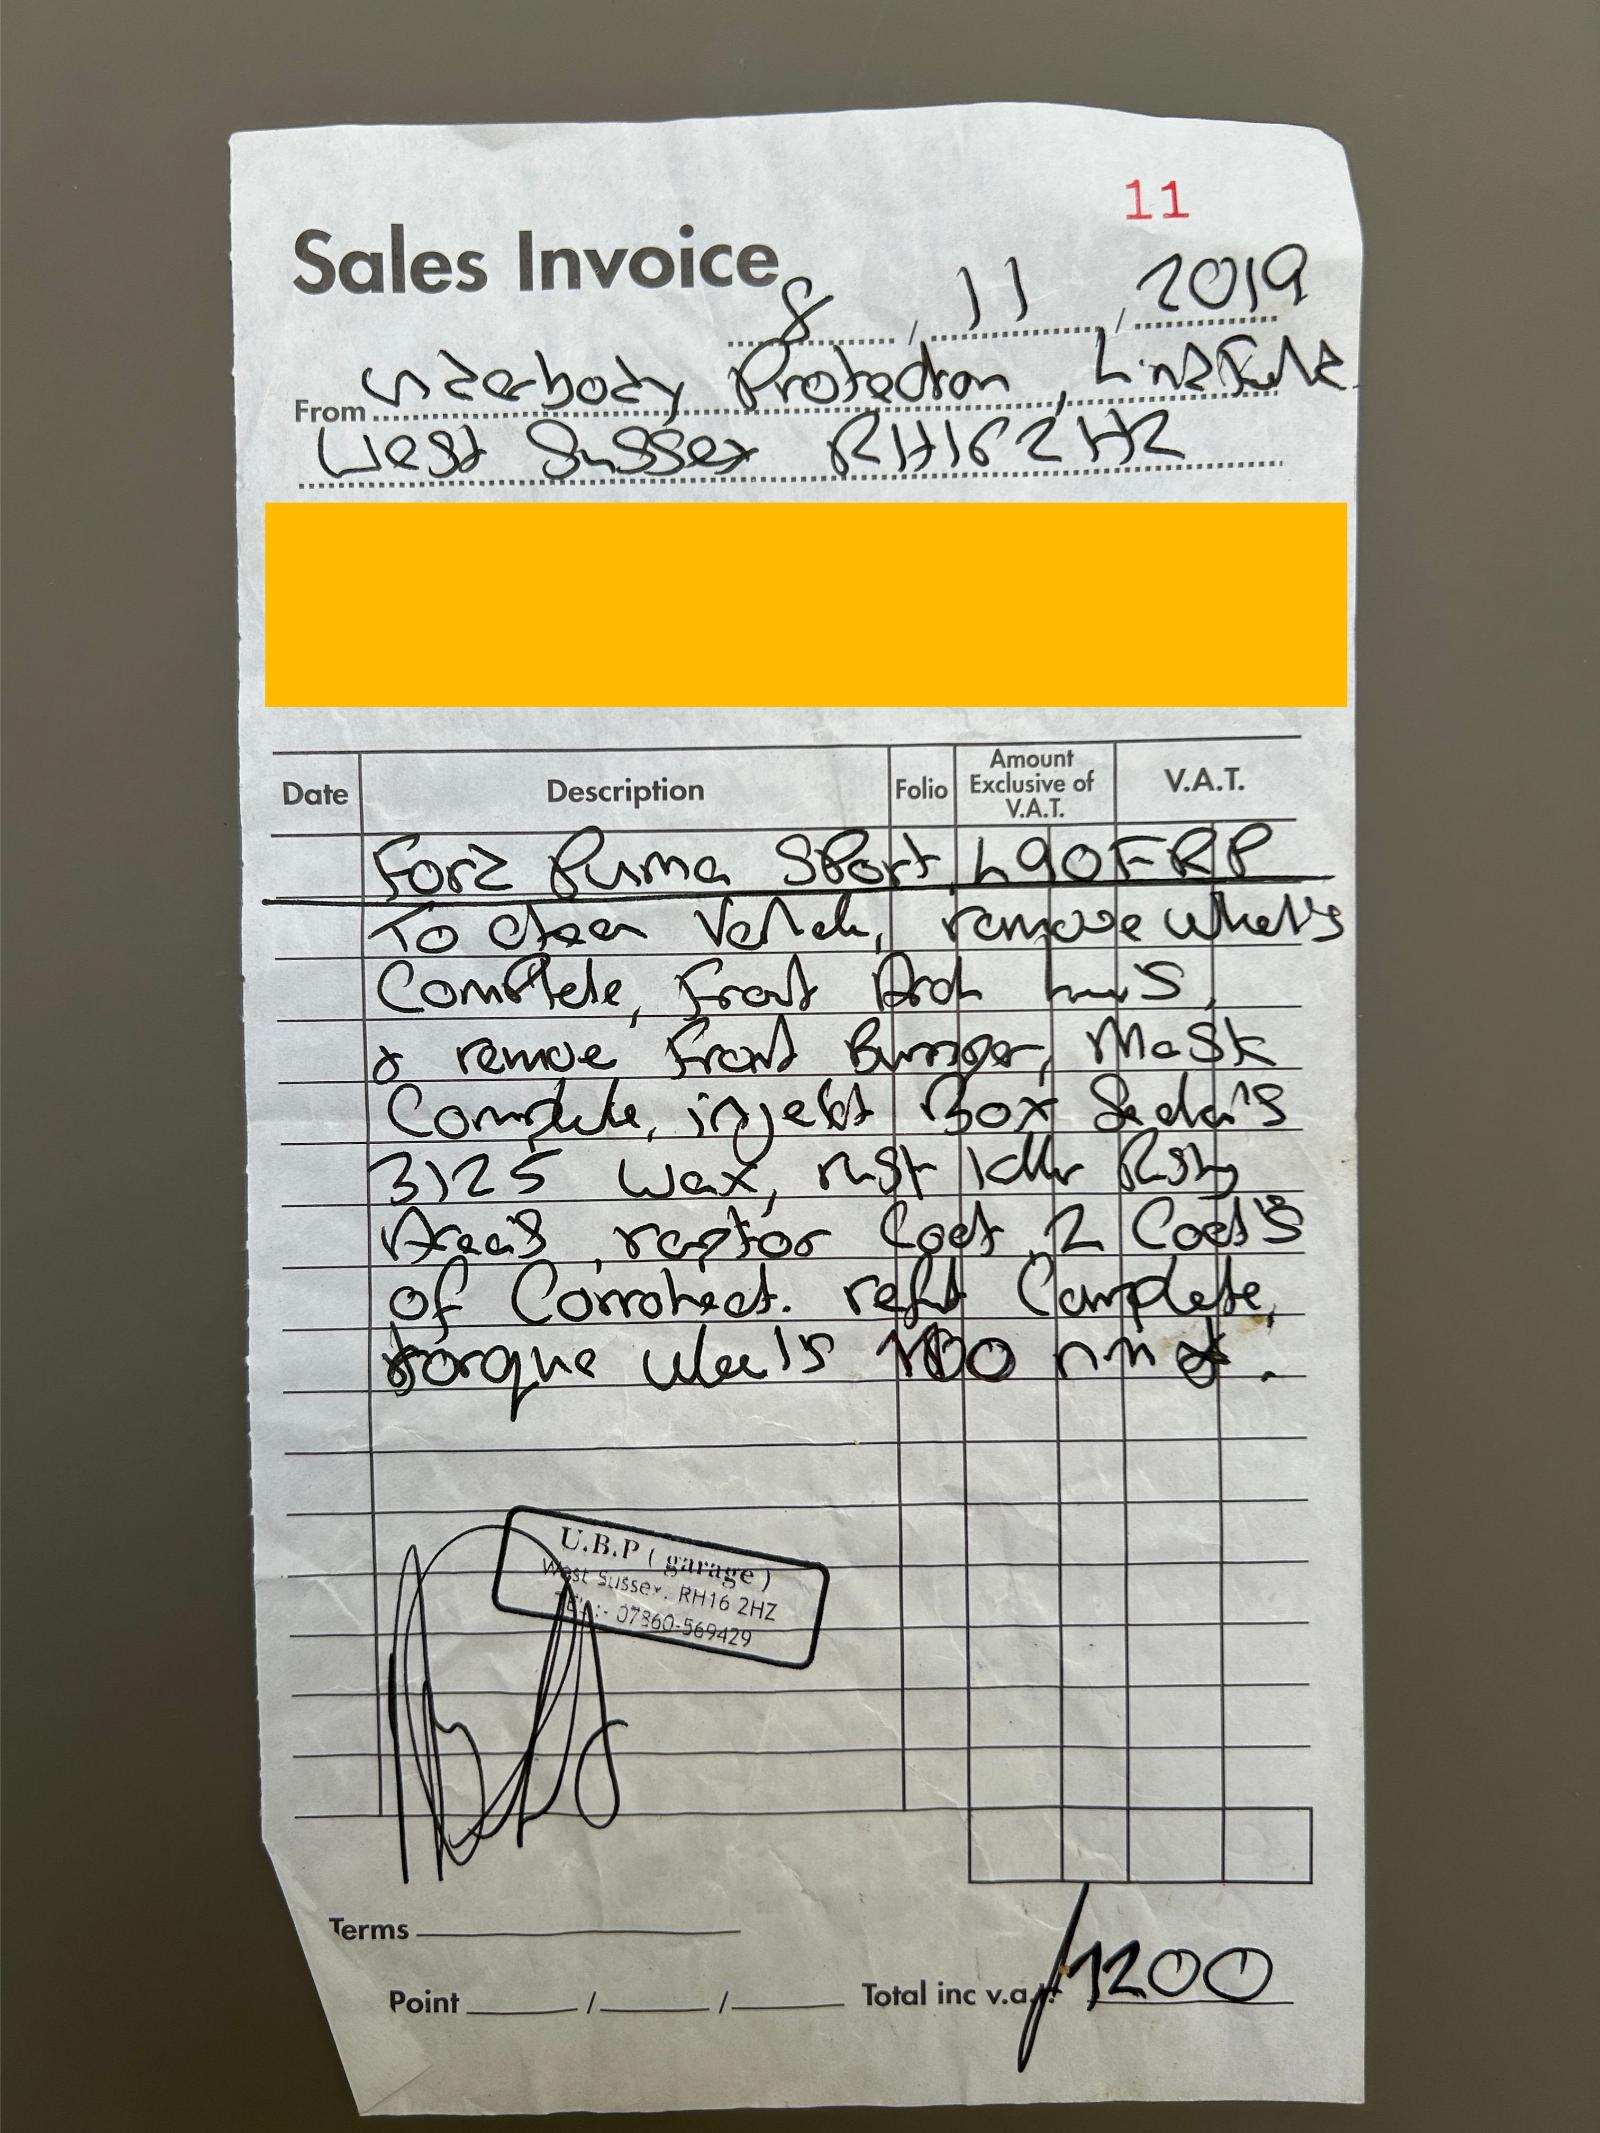 11
Sales Invoice
8 / 11 / 2019
From Underbody Protection, Lindfield
West Sussex RH16 2HZ
Date Description Folio Amount Exclusive of V.A.T. V.A.T.
Ford Puma Sport, L90FRP
To clean Vehicle, remove wheel's
Complete, Front Arch liner's,
& remove Front Bumper, Mask
Complete, inject Box Section's
3125 Wax, rust killer Rusty
Area's, raptor Coat, 2 Coat's
of Corroheat. refit Complete,
torque wheel's 100 nm
U.B.P ( garage )
West Sussex. RH16 2HZ
TEL :- 07860-569429
Terms
Point / / Total inc v.a.t. 1200